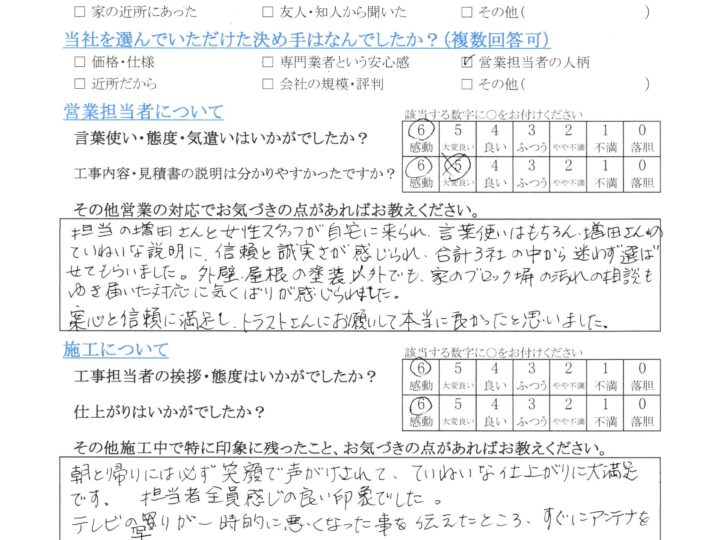 □ 家の近所にあった □ 友人・知人から聞いた □ その他( )
当社を選んでいただけた決め手はなんでしたか？(複数回答可)
□ 価格・仕様 □ 専門業者という安心感 ☑ 営業担当者の人柄
□ 近所だから □ 会社の規模・評判 □ その他( )
営業担当者について 該当する数字に○をお付けください
言葉使い・態度・気遣いはいかがでしたか？ 6 5 4 3 2 1 0
感動 大変良い 良い ふつう やや不満 不満 落胆
工事内容・見積書の説明は分かりやすかったですか？ 6 5 4 3 2 1 0
感動 大変良い 良い ふつう やや不満 不満 落胆
その他営業の対応でお気づきの点があればお教えください。
担当の増田さんと女性スタッフが自宅に来られ、言葉使いはもちろん、増田さんの
ていねいな説明に、信頼と誠実さが感じられ、合計3社の中から迷わず選ば
せてもらいました。外壁、屋根の塗装以外でも、家のブロック塀の汚れの相談も
ゆき届いた対応に気くばりが感じられました。
案心と信頼に満足し、トラストさんにお願いして本当に良かったと思いました。
施工について 該当する数字に○をお付けください
工事担当者の挨拶・態度はいかがでしたか？ 6 5 4 3 2 1 0
感動 大変良い 良い ふつう やや不満 不満 落胆
仕上がりはいかがでしたか？ 6 5 4 3 2 1 0
感動 大変良い 良い ふつう やや不満 不満 落胆
その他施工中で特に印象に残ったこと、お気づきの点があればお教えください。
朝と帰りには必ず笑顔で声がけされて、ていねいな仕上がりに大満足
です。 担当者全員感じの良い印象でした。
テレビの りが一時的に悪くなった事を伝えたところ、すぐにアンテナを